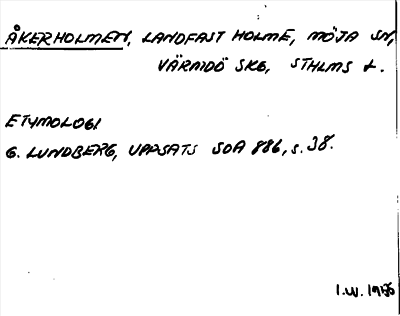 ÅKERHOLMEN, LANDFAST HOLME, MÖJA SN,
VÄRMDÖ SKG, STHLMS L.
ETYMOLOGI
G. LUNDBERG, UPPSATS SOA 886, s. 38.
I.W. 1956